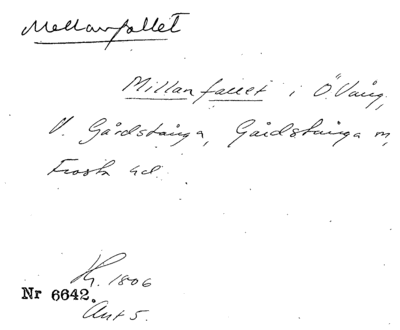 Mellanfallet
Millanfallet i Ö. Vång,
V. Gårdstånga, Gårdstånga m,
Frosta hd.
1806
Nr 6642.
Akt 5.